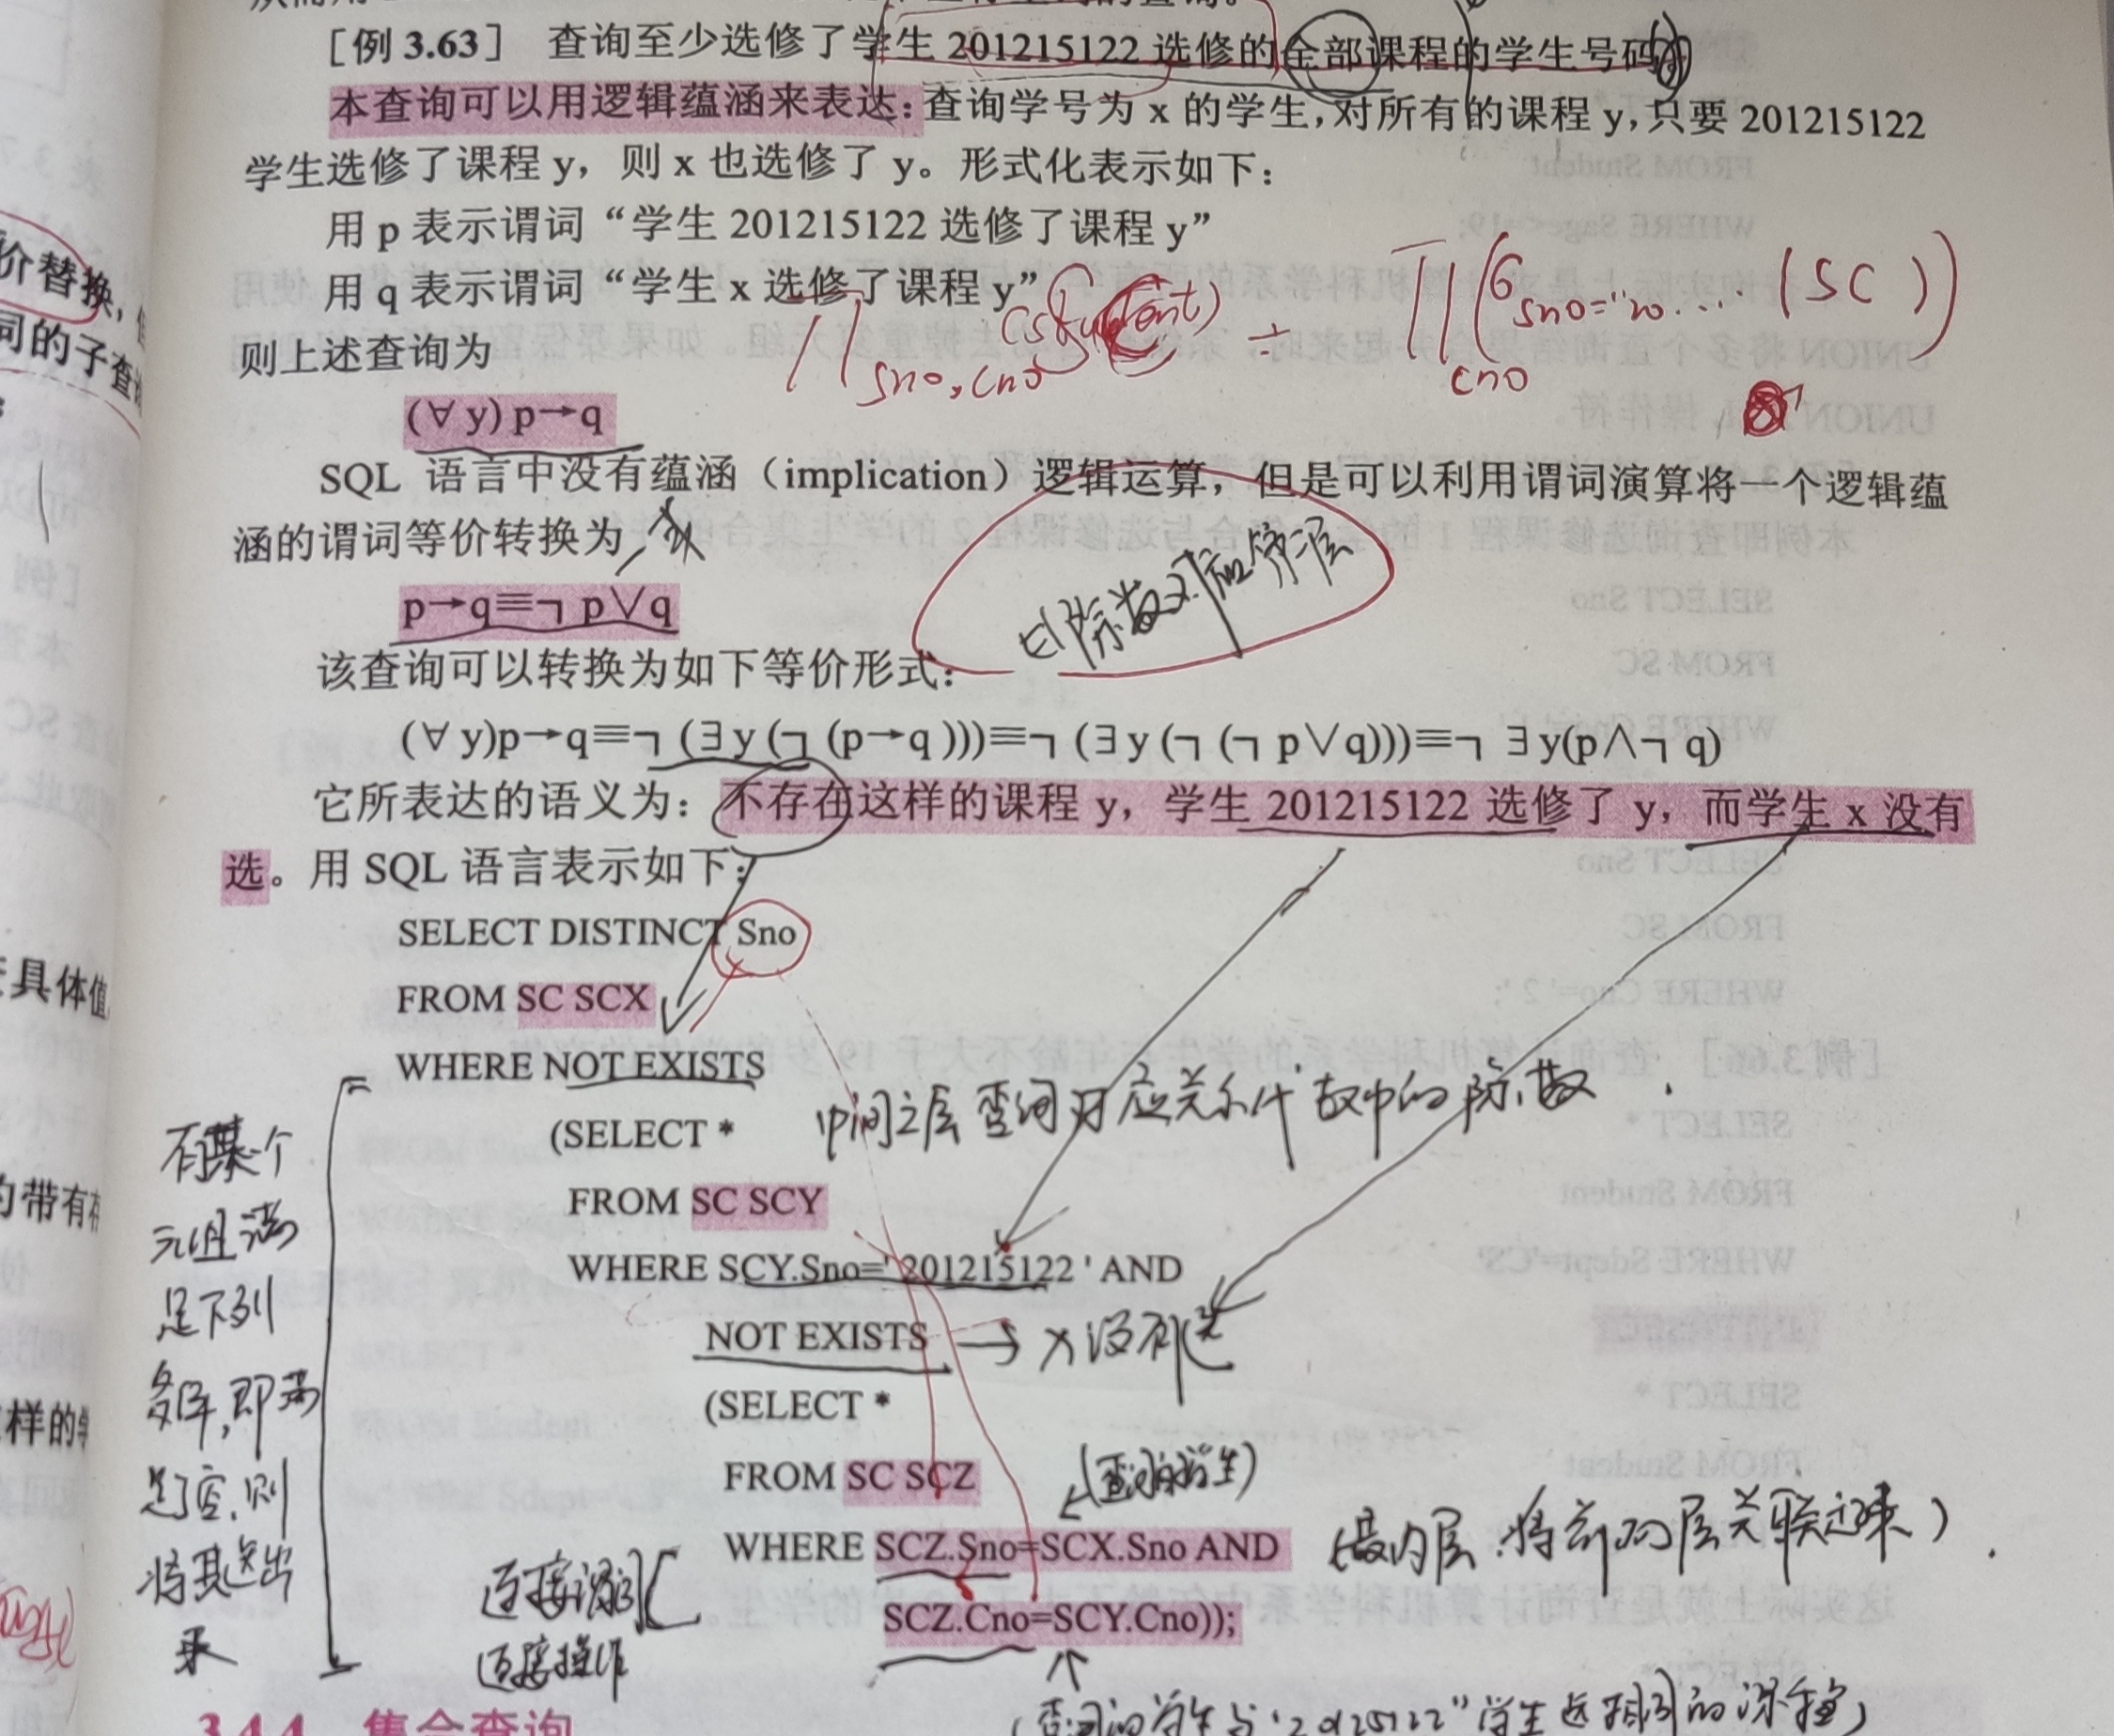 [例 3.63] 查询至少选修了学生 201215122 选修的全部课程的学生号码。
本查询可以用逻辑蕴涵来表达：查询学号为 x 的学生，对所有的课程 y，只要 201215122
学生选修了课程 y，则 x 也选修了 y。形式化表示如下：
用 p 表示谓词“学生 201215122 选修了课程 y”
用 q 表示谓词“学生 x 选修了课程 y”
则上述查询为
∏sno,cno (Student) ÷ ∏cno (σsno="20... (SC))
(∀y) p→q
SQL 语言中没有蕴涵（implication）逻辑运算，但是可以利用谓词演算将一个逻辑蕴
涵的谓词等价转换为
p→q≡¬ p∨q
除数对应第二层
该查询可以转换为如下等价形式：
(∀y)p→q≡¬ (∃y (¬ (p→q )))≡¬ (∃y (¬ (¬ p∨q)))≡¬ ∃y(p∧¬ q)
它所表达的语义为：不存在这样的课程 y，学生 201215122 选修了 y，而学生 x 没有
选。用 SQL 语言表示如下：
SELECT DISTINCT Sno
FROM SC SCX
WHERE NOT EXISTS
(SELECT * 中间之层查询对应关系代数中的除数
FROM SC SCY
WHERE SCY.Sno=' 201215122 ' AND
NOT EXISTS → x没有选
(SELECT *
FROM SC SCZ
(查询的学生)
WHERE SCZ.Sno=SCX.Sno AND (最内层.将前两层关联起来)
SCZ.Cno=SCY.Cno));
有某个
元组满
足下列
条件,即满
足了空,则
将其选出
来
连接谓词
连接操作
(查询的学生与"201215122"学生选相同的课程)
3.4.4 集合查询
价替换,
同的子查询
具体值
的带有
样的学